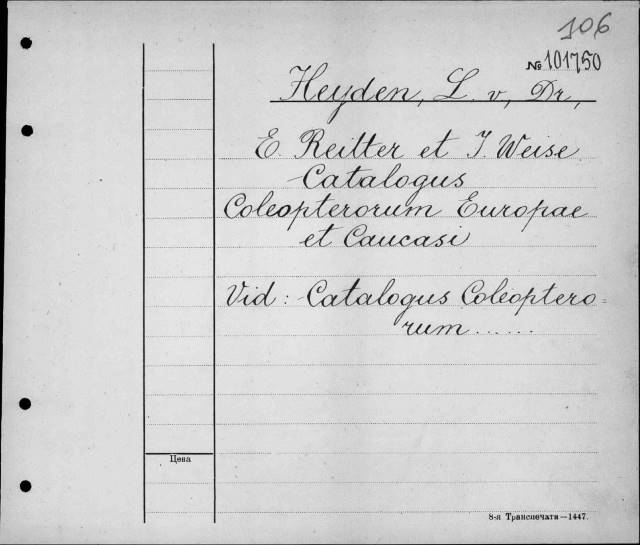 106
№ 101750
Heyden, L. v, Dr,
E. Reitter et J. Weise
Catalogus
Coleopterorum Europae
et Caucasi
Vid: Catalogus Coleoptero=
rum......
Цена
8-я Транспечати—1447.